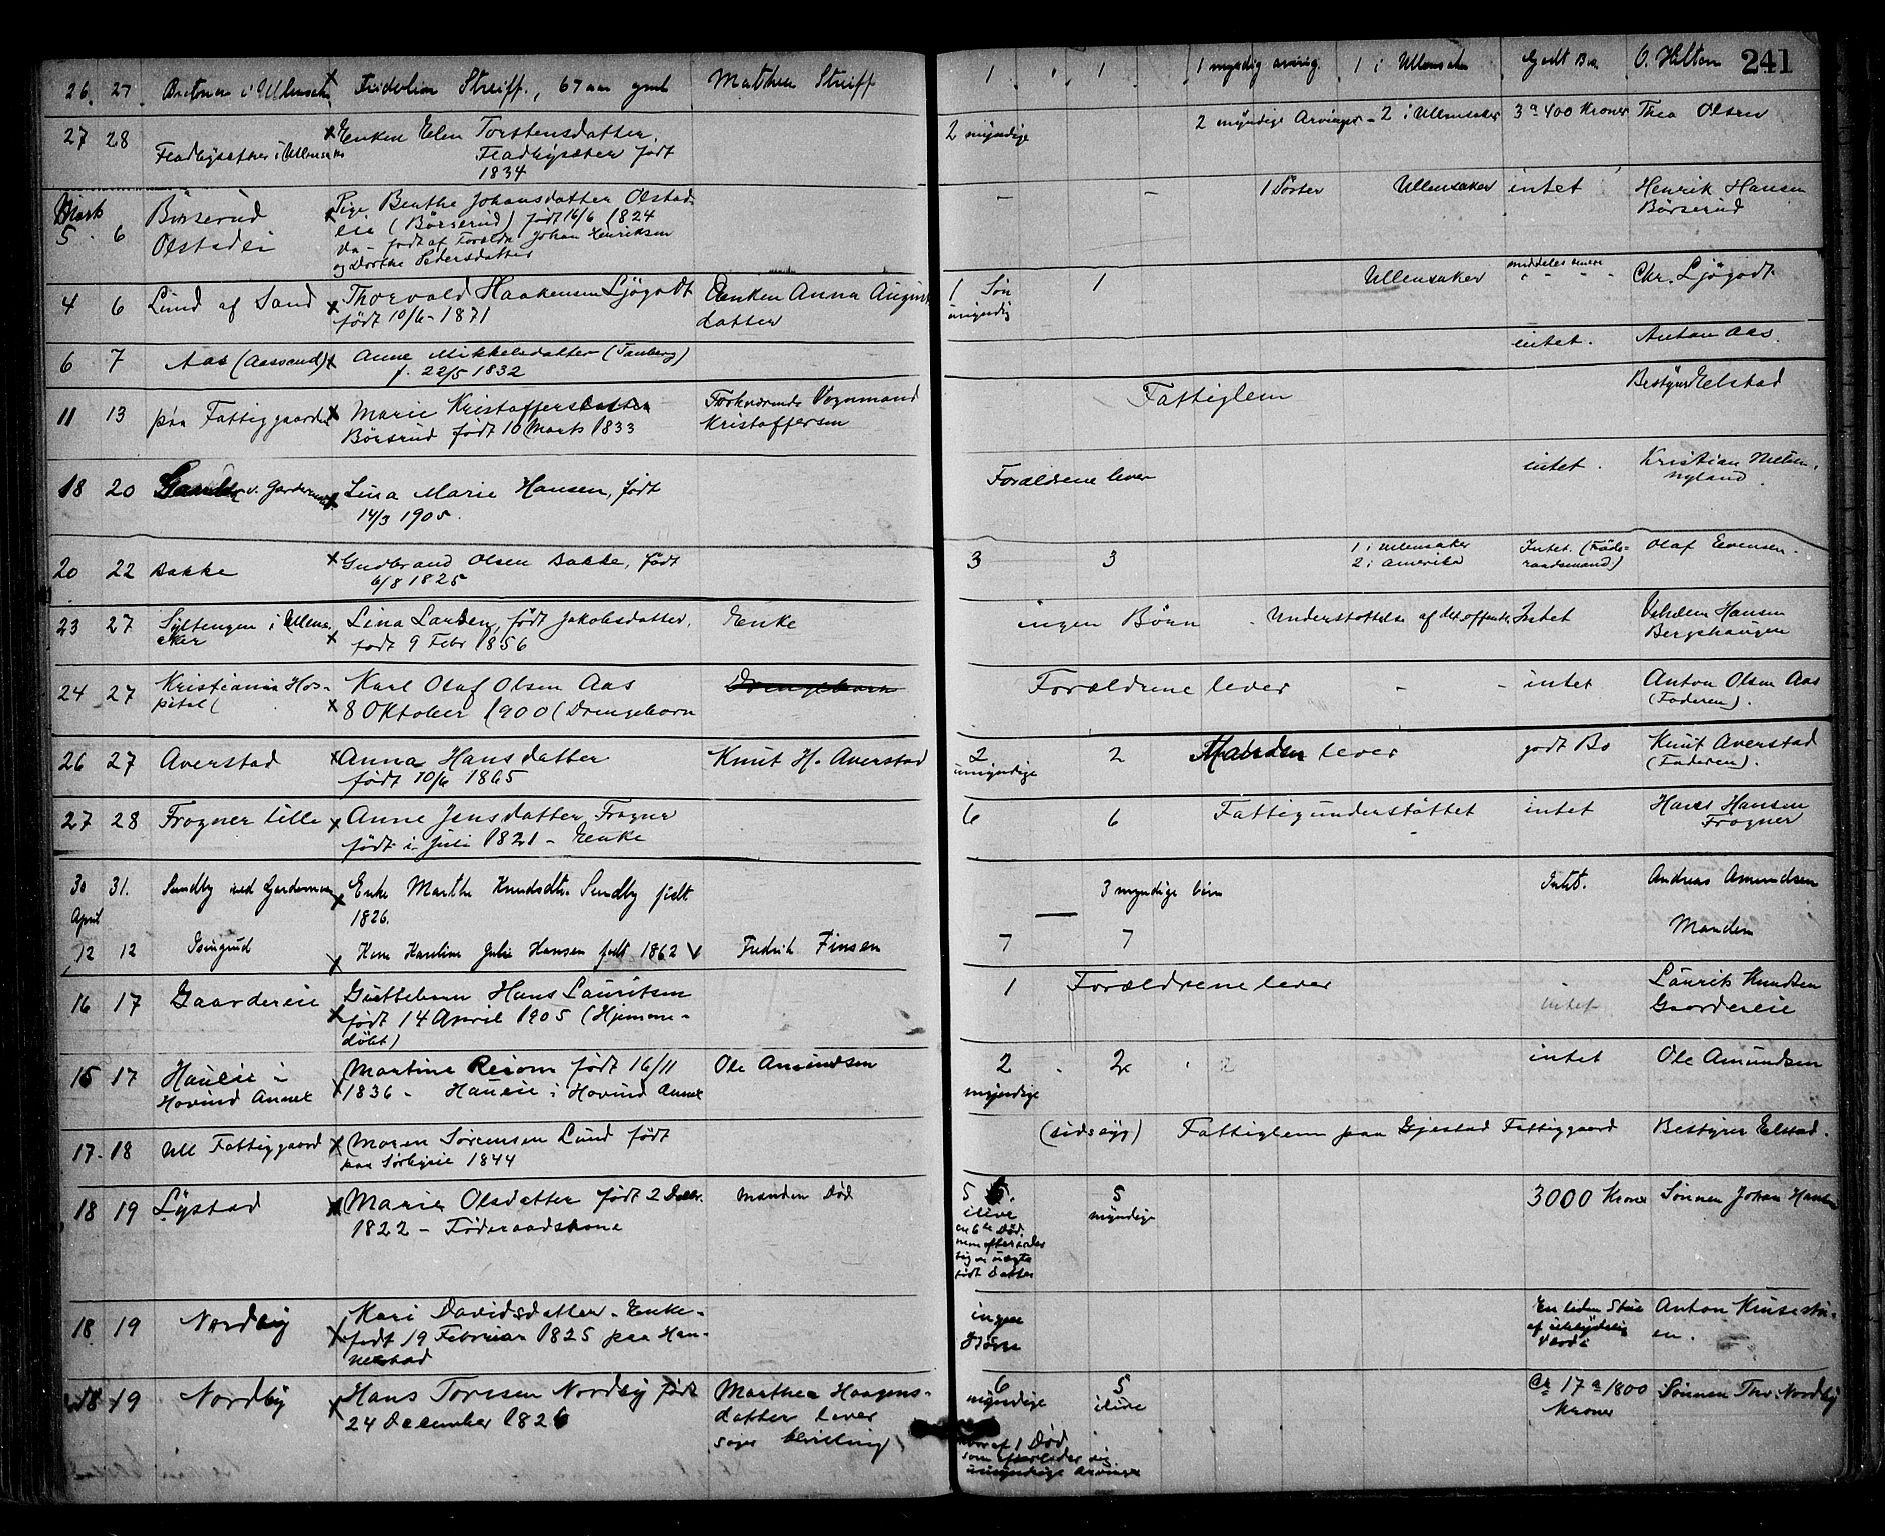 241
26. 27 i Ullensaker Fridolin Streiff, 67 aar gml Mathea Streiff 1 1 1 myndig arving 1 i Ullensaker Godt Bo. O. Hilton
27 28 Enken Elen Torstensdatter, 2 myndige 2 myndige Arvinger - 2 i Ullensaker 3 a 400 Kroner Thea Olsen
Fladbysæter i Ullensaker Fladbysæter født
1834
Mark
5. 6 Børserud Pige Berthe Johansdatter Olstad- — — 1 Søster Ullensaker intet Henrik Hansen
Olstadei eie (Børserud) født 16/6 1824 Børserud
født af Foreldr. Johan Henriksen
og Dorthe Pedersdatter
4 6 Lund af Sand Thorvald Haakensen Ljøgodt Enken Anna August 1 Søn 1 Ullensaker meddeles senere Chr. Ljøgodt
født 10/6 - 1871 datter umyndig
6 7 Aas (Aassund) Anne Mikkelsdatter (Tanberg) intet. Anton Aas.
f. 22/5 1832
11 13 paa Fattiggaarden Marie Kristoffersdatter Forhværende Vognmand Fattiglem Bestyrer Elstad
Børsrud født 10 Marts 1833 Kristoffersen
18 20 v. Gardermoen Lina Marie Hansen, født Forældrene lever intet. Kristian
14/3 1905. Nyland
20 22 Bakke Gudbrand Olsen Bakke, født 3 3 1 i Ullensaker Intet. (Føde- Olaf Evensen.
6/8 1825 2 i Amerika raadsmand)
23 27 Syltengen i Ullens- Lina Larsen, født Jakobsdatter, Enke ingen Børn - Understøttelse af det offentl. Intet Hansen
aker født 9 Febr 1856 Bergshaugen
24 27 Kristiania Hos- Karl Olaf Olsen Aas Drengebarn Forældrene lever - - intet Anton Olsen Aas
pital 8 Oktober 1900 (Drengebarn (Faderen).
26 27 Averstad Anna Hansdatter Knut H. Averstad 2 2 Manden lever godt Bo Knut Averstad
født 10/6 1865 umyndige (Faderen).
27 28 Frogner lille Anne Jensdatter Frogner 6 6 Fattigunderstøttet intet Hans Hansen
født i juli 1821 - Enke Frogner
30 31. Sundby ved Gardermoen Enke Marthe Knudsdtr. Sundby født — 3 myndige børn Intet. Andreas Amundsen
1826.
April
12 12 Isingrud Kone Karoline Julie Hansen født 1862 Fredrik Finsen 7 7 Manden
16 17 Gaardereie Guttebarn Hans Lauritsen 1 Forældrene lever intet Laurits Knudsen
født 14 April 1905 (Hjemme- Gaardereie
døbt)
15 17 Haueie i Martine født 16/11 Ole Amundsen 2 2 intet Ole Amundsen
Hovind Annex 1836 - Haueie i Hovind Annex myndige
17. 18 Ull Fattiggaard Maren Sørensen Lund født (sidsyg) Fattiglem paa Gjestad Fattiggaard Bestyrer Elstad.
paa Sørbyeie 1844
18 19 Lystad Marie Olsdatter født 2 Decbr. Manden Død 5 5 3000 Kroner Sønnen Johan
1822 - Føderaadskone ilive myndige
en 6te Død,
men efterlader
sig en uægte
født Datter
18 19 Nordby Kari Davidsdatter - Enke- ingen En liden Stue Anton
født 19 Februar 1825 paa Han- Børn af ubetydelig en.
nestad Værdi
18 19 Nordby Hans Toresen Nordby født Marthea Haagens- 6 5 Ca 17 a 1800 Sønnen Thv. Nordby
24 December 1826 datter lever myndige ilive Kroner
søger bevilling
hvoraf 1 Død
som efterlader sig
umyndige Arvinger